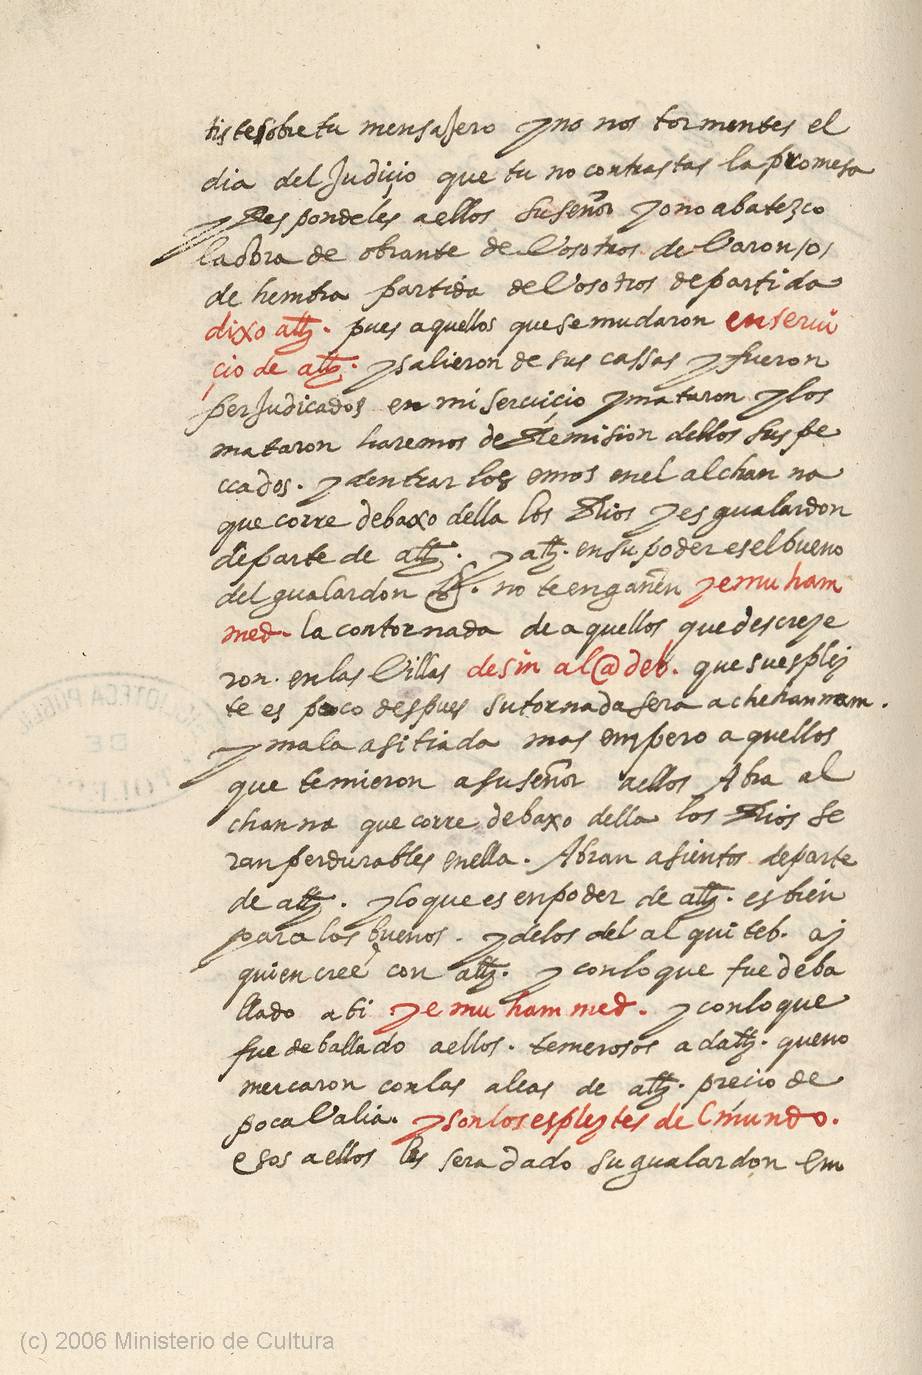 tis te sobre tu mensaJero y no nos tormentes el
dia del Judiçio que tu no contrastas la promesa
y Respondeles a ellos su señor yo no abatezco
la obra de obrante de Vosotros de Varon / o /
de hembra partida de Vosotros de partida
dixo allh. pues aquellos que se mudaron en servi
çio de allh. y salieron de sus cassas y fueron
perJudicados en mi servicio y mataron y los
mataron haremos de Remision dellos sus pe
ccados. y dentrar los emos en el alchanna
que corre debaxo della los Rios y es gualardon
de parte de allh. y allh. en su poder es el bueno
del gualardon no te engañen ye muham
med. la contornada de aquellos que descreye
ron. en las Villas desin al@deb. que su espley
te es poco despues su tornada sera a chehannam.
y mala asitiada mas empero aquellos
que temieron a su señor aellos Abra al
channa que corre debaxo della los Rios se
ran perdurables enella. Abran asientos de parte
de allh. y lo que es en poder de allh. es bien
para los buenos. y delos del alquiteb. ay
quien creé con allh. y con lo que fue deba
llado a ti ye muhammed. y con lo que
fue deballado aellos. temerosos ad allh. que no
mercaron con las aleas de allh. precio de
poca Valia. y son los espleytes del mundo.
esos aellos les sera dado su gualardon em
BIBLIOTECA PUBLICA
DE
TOLEDO
(c) 2006 Ministerio de Cultura